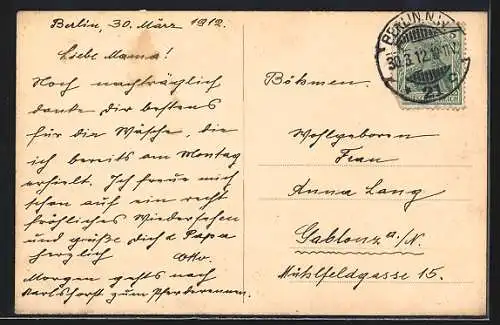 Berlin, 30. März 1912.
Liebe Mama!
Noch nachträglich
danke Dir bestens
für die Wäsche, die
ich bereits am Montag
erhielt. Ich freue mich
schon auf ein recht
fröhliches Wiedersehen
und grüße Dich & Papa
herzlich Otto.
Morgen gehts nach
Karlshorst zum Pferderennen.
BERLIN N.W.
30.3.12.
21 c
Böhmen.
Wohlgeboren
Frau
Anna Lang
Gablonz a/N.
Mühlfeldgasse 15.